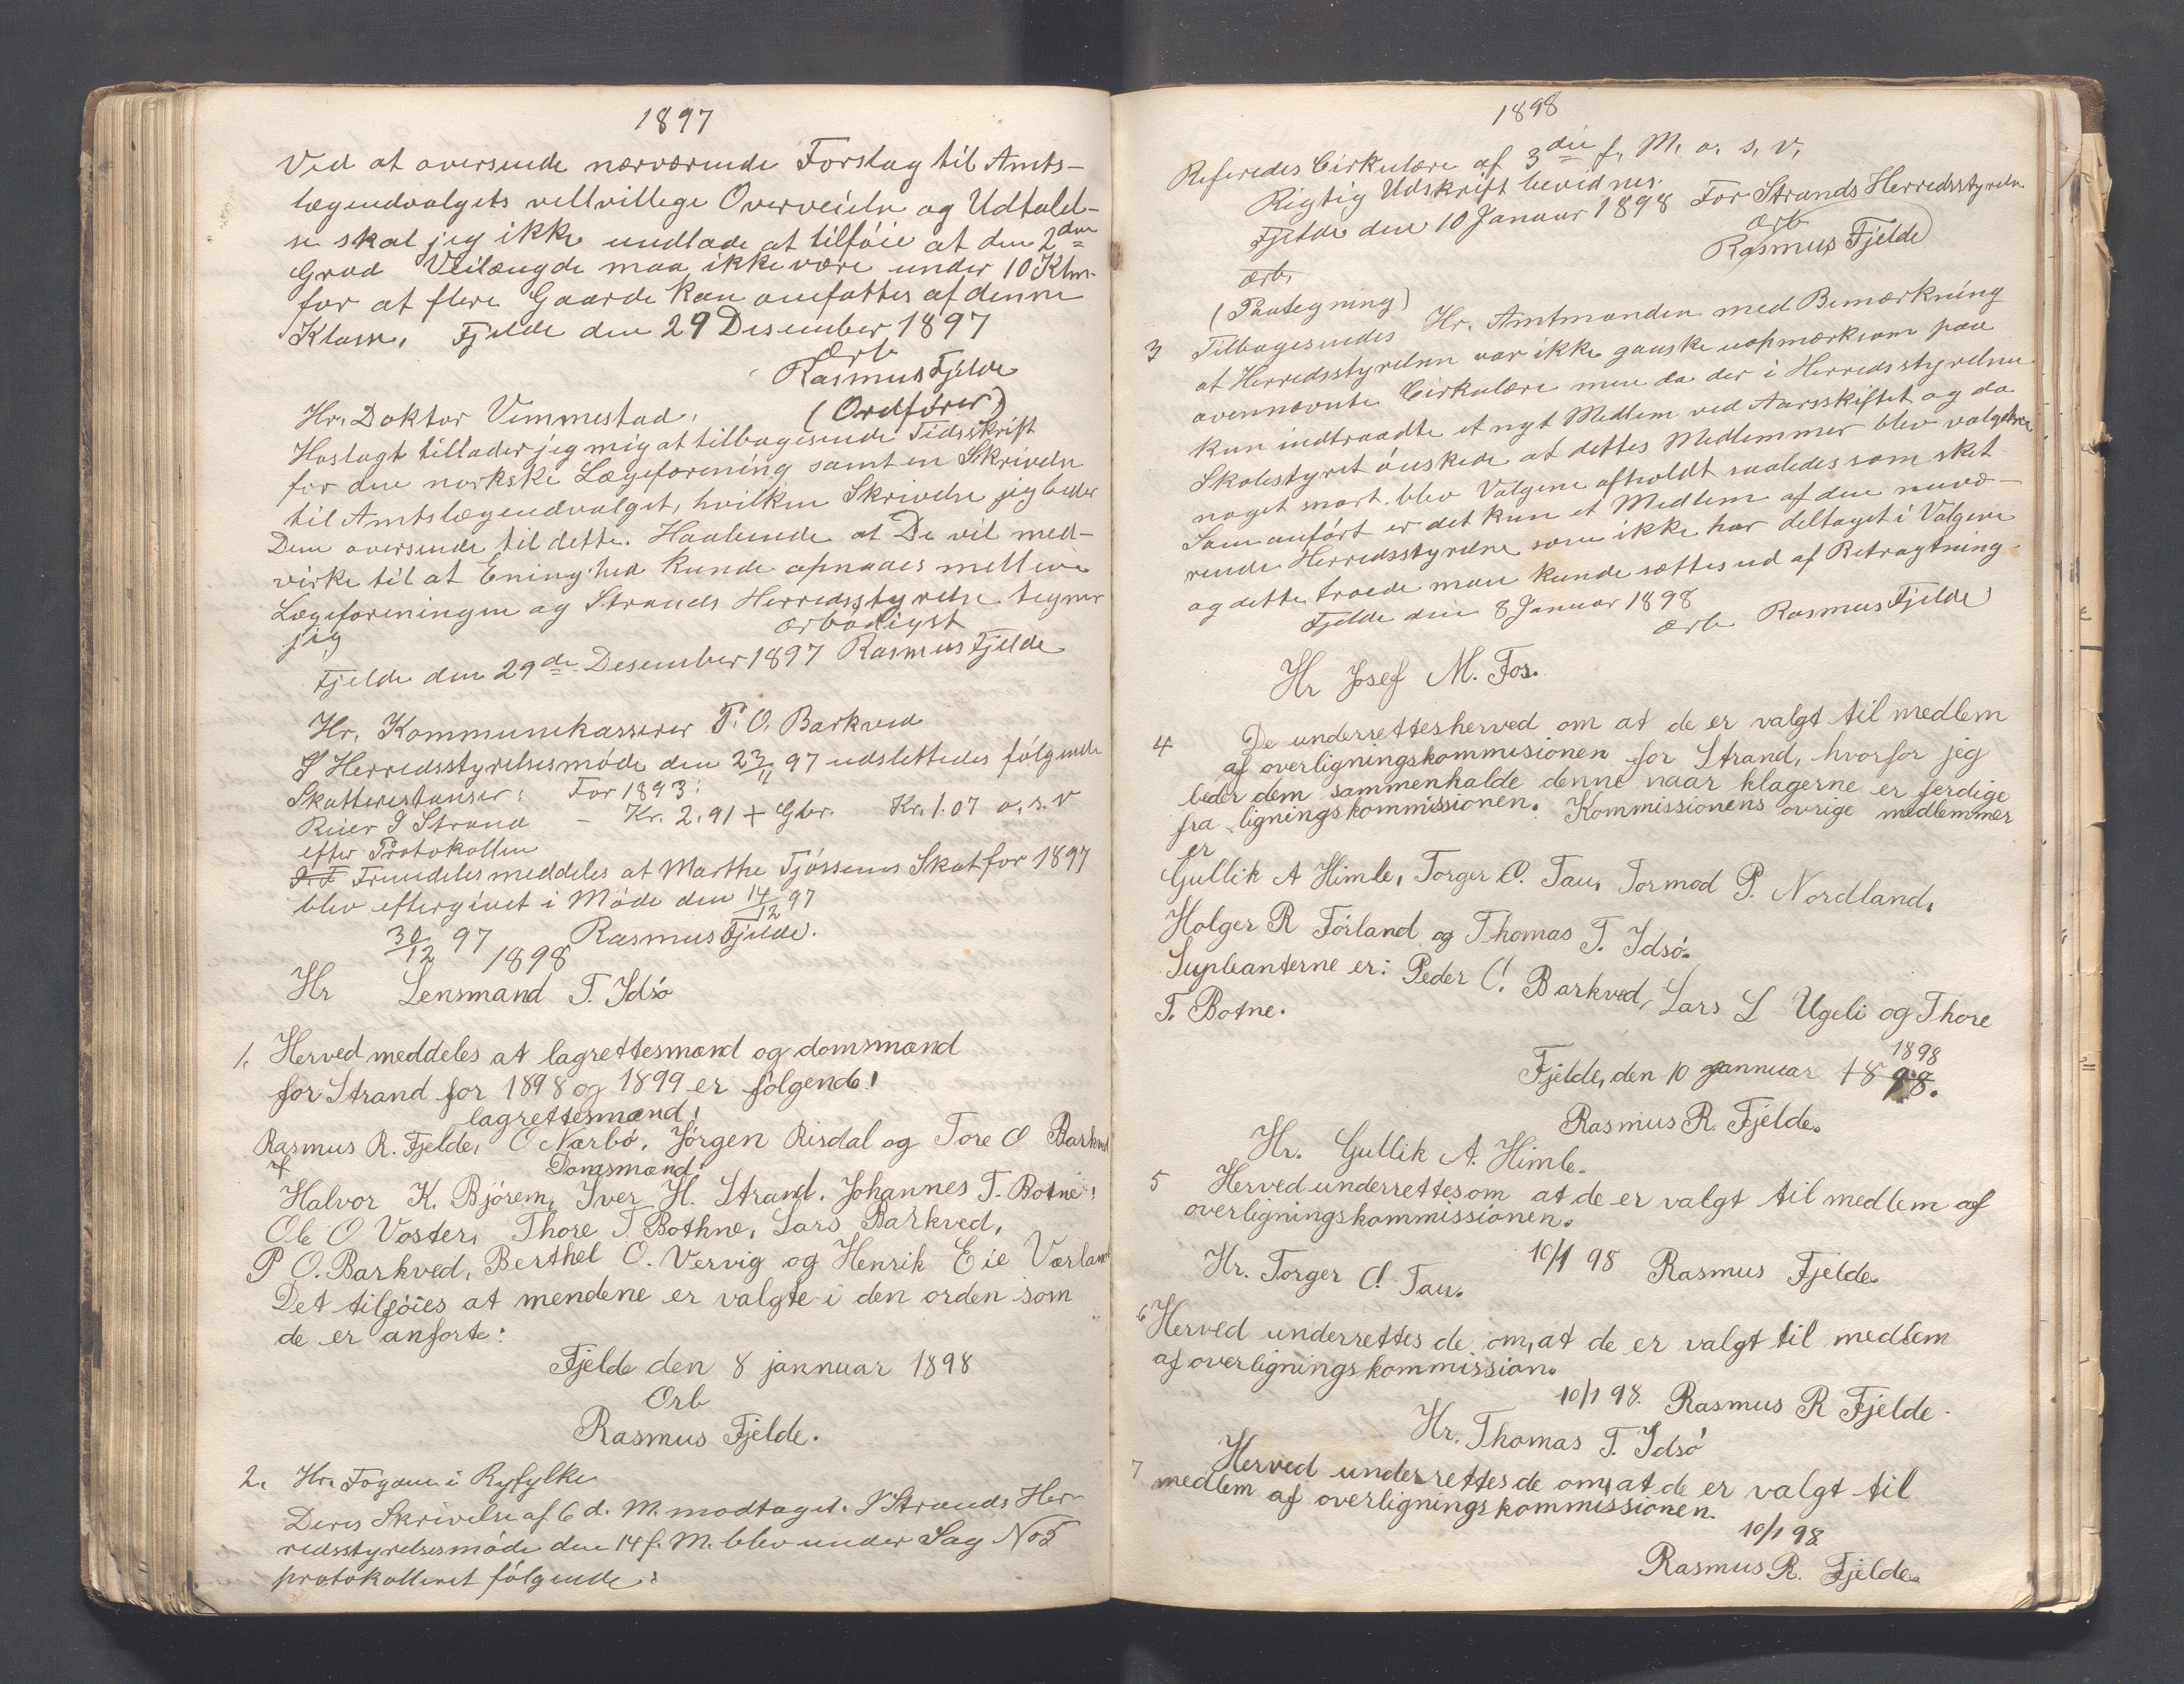 1897
Ved at oversende nærværende Forslag til Amts-
lægeudvalgets velvillige Overveielse og Udtalel-
se skal jeg ikke undlade at tilföie at den 2den
Grad Veilængde maa ikke være under 10 Klm.
for at flere Gaarde kan omfattes af denne
Klasse, Fjelde den 29 Desember 1897
Ærb
Rasmus Fjelde
(Ordförer)
Hr. Doktor Vimmestad.
Hoslagt tillader jeg mig at tilbagesende Tidsskrift
for den norkske Lægeforening samt en Skrivelse
til Amtslægeudvalget, hvilken Skrivelse jeg beder
Dem oversende til dette. Haabende at De vil med-
virke til at Eninghed kunde opnaaes mellem
Lægeforeningen og Strands Herredsstyrelse tegner
jeg
ærbödigst
Fjelde den 29de Desember 1897 Rasmus Fjelde
Hr. Kommunekasserer P. O. Barkved
I Herredsstyrelsesmöde den 23/11 97 udslettedes fölgende
Skatterestanser: For 1893:
Reier I Strand - Kr. 2.91 + Gbr. Kr. 1.07 o. s. v
efter Protokollen
Fremdeles meddeles at Marthe Fjössens Skat for 1897
blev eftergivet i Möde den 14/12 97
30/12 97 Rasmus Fjelde.
1898
Hr Lensmand T. Idsö
1. Herved meddeles at lagrettesmænd og domsmænd
for Strand for 1898 og 1899 er fölgende!
lagrettesmænd!
Rasmus R. Fjelde, O Nærbö, Jörgen Risdal og Tore O Barkved
Domsmænd:
Halvor K. Björem, Iver H. Strand, Johannes T. Botne!
Ole O Voster, Thore T. Bothne, Lars Barkved,
P O. Barkved, Berthel O. Vervig og Henrik Eie Vorland
Det tilföies at mendene er valgte i den orden som
de er anforte:
Fjelde den 8 jannuar 1898
Orb
Rasmus Fjelde.
2. Hr. Fogden i Ryfylke
Deres Skrivelse af 6 d. M. modtaget. I Strands Her-
redsstyrelsesmöde den 14 f. M. blev under Sag No 5
protokolleret fölgende:
1898
Referedes Cirkulære af 3die f. M. o. s. v.
Rigtig Udskrift bevidnes.
Fjelde den 10 Januar 1898 For Strands Herredsstyrelse
ærb
Rasmus Fjelde
ærb.
(Paategning)
3 Tilbagesendes Hr. Amtmanden med Bemærkning
at Herredsstyrelsen var ikke ganske uopmærksom paa
ovennævnte Cirkulære men da der i Herredsstyrelsen
kun indtraadte et nyt Medlem ved Aarsskiftet og da
Skolestyret önskede at dettes Medlemmer blev valgte
noget snart blev Valgene afholdt saaledes som sket
Som anfört er det kun et Medlem af den nuvæ-
rende Herredsstyrelse som ikke har deltaget i Valgene
og dette troede man kunde sættes ud af Betragtning.
Fjelde den 8 Januar 1898
ærb Rasmus Fjelde
Hr Josef M. Fos.
4 De underrettes herved om at de er valgt til medlem
af overligningskommisionen for Strand, hvorfor jeg
beder dem sammenkalde denne naar klagerne er ferdige
fra ligningskommissionen. Kommissionens övrige medlemmer
er
Gullik A Himle, Torger O. Tau, Tormod P. Nordland,
Holger R Förland og Thomas T. Idsö.
Supleanterne er: Peder O. Barkved, Lars L Ugeli og Thore
T. Botne.
Fjelde, den 10 jannuar 1898 1898.
Rasmus R. Fjelde.
Hr. Gullik A. Himle.
5 Herved underrettes om at de er valgt til medlem af
overligningskommissionen.
10/1 98 Rasmus Fjelde.
Hr. Torger O. Tau.
6 Herved underrettes de om, at de er valgt til medlem
af overligningskommission.
10/1 98. Rasmus R Fjelde.
Hr. Thomas T. Idsö
7 Herved underrettes de om, at de er valgt til
medlem af overligningskommissionen.
10/1 98
Rasmus R. Fjelde.